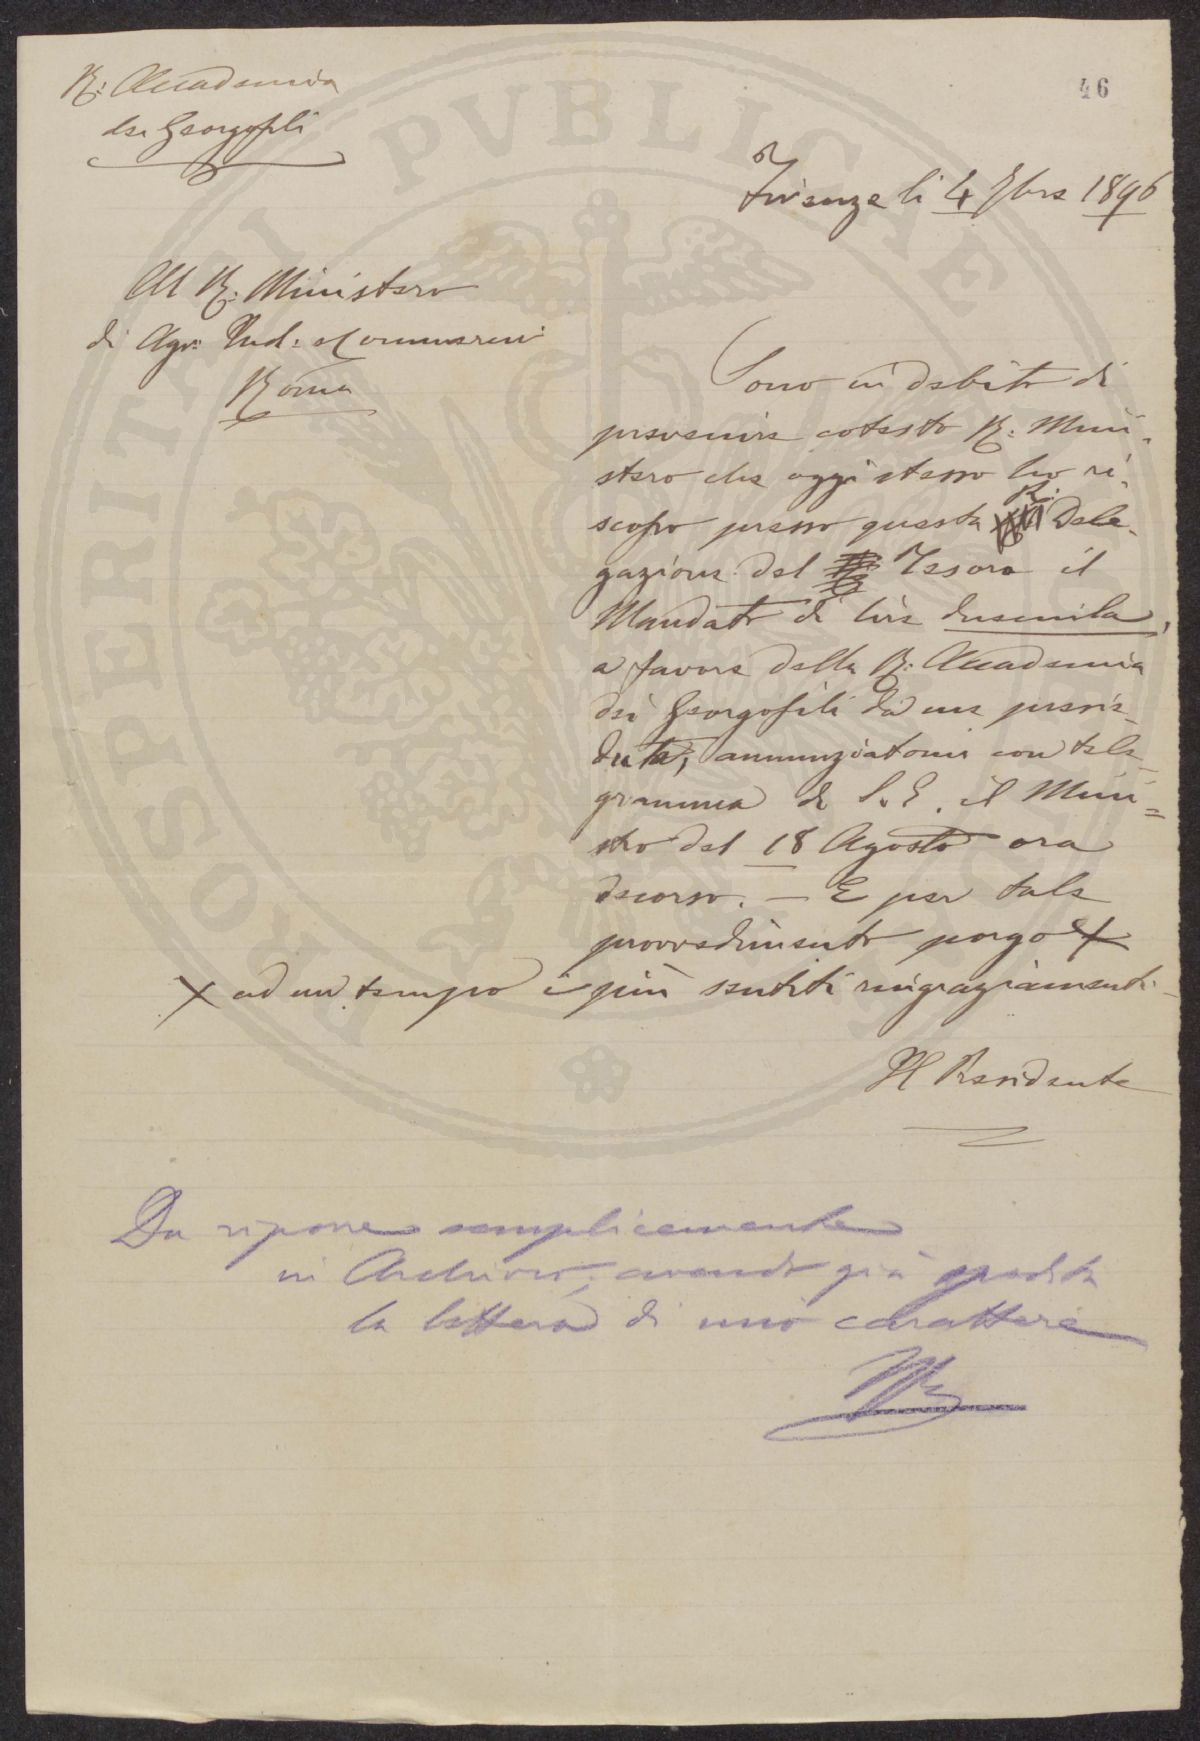 46
R: Accademia
dei Georgofili
Firenze li 4 7bre 1896
Al R: Ministero
di Agr: Ind: e Commercio
Roma
Sono in debito di
prevenire cotesto R: Mini-
stero che oggi stesso ho ri-
scosso presso questa R: Dele-
gazione del Tesoro il
Mandato di lire duemila,
a favore della R: Accademia
dei Georgofili da me presie-
duta, annunziatomi con tele-
gramma di S. E. il Mini-
stro del 18 Agosto ora
decorso. — E per tale
provvedimento porgo X
X ad un tempo i più sentiti ringraziamenti
Il Presidente
Da riporre semplicemente
in Archivio, avendo già spedita
la lettera di mio carattere
PROSPERITATI PVBLICAE